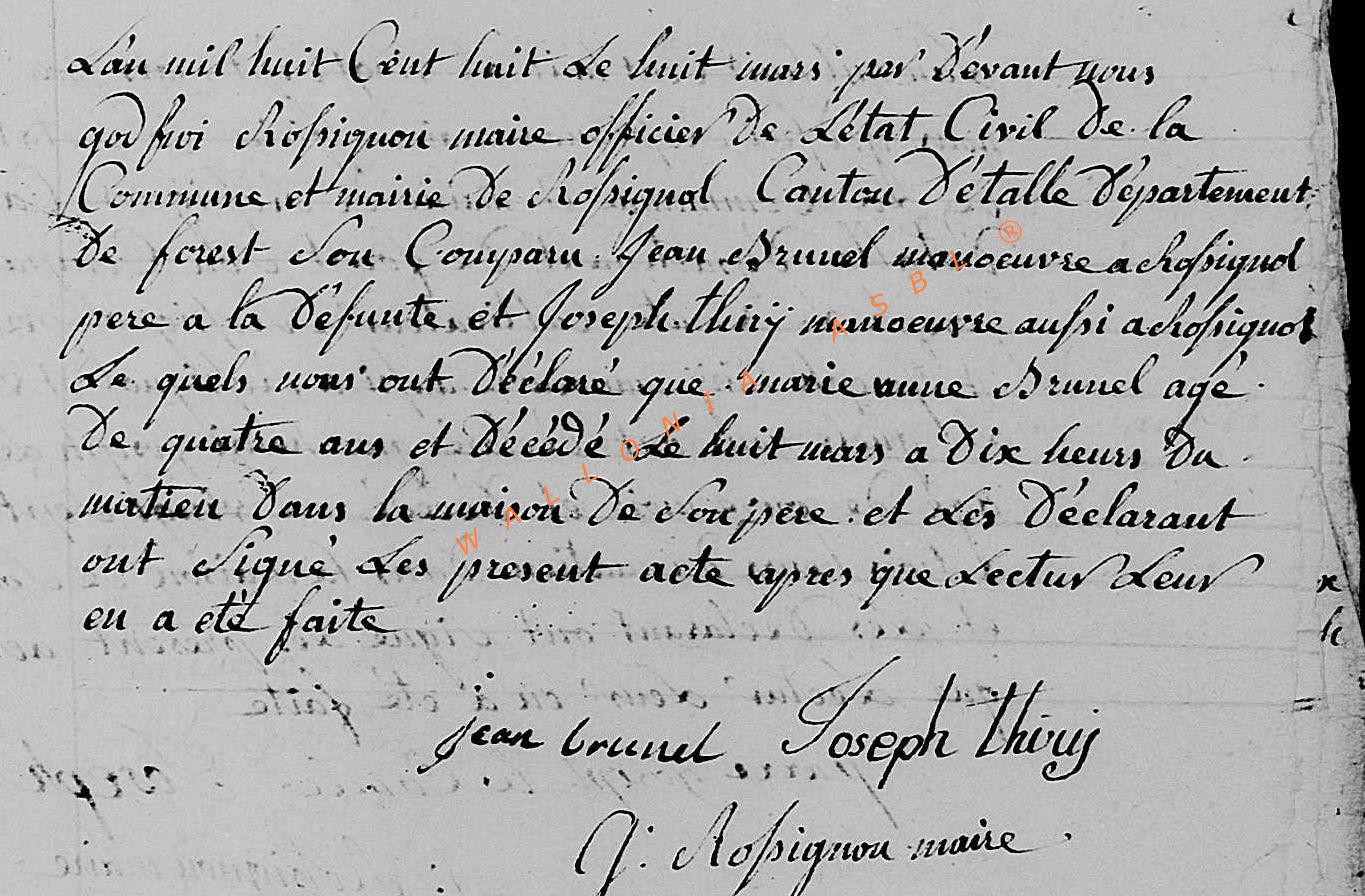 L'an mil huit Cent huit Le huit mars par Dévant nous
godfroi Rossignon maire officier De L'état Civil De la
Commune et mairie De Rossignol Canton D'étalle Département
De forest Son Comparu Jean Brunel manoeuvre a Rossignol
pere a la Défunte et Joseph thiry manoeuvre aussi a Rossignol
Le quels nous ont Déclaré que marie anne Brunel agé
De quatre ans et Décédé Le huit mars a Dix heurs Du
matien Dans la maison De Son pere et Les Déclarant
ont Signé Les present acte apres que Lectur Leur
en a eté faite
jean brunel Joseph thiry
G. Rossignon maire
WALLONIA ASBL ®